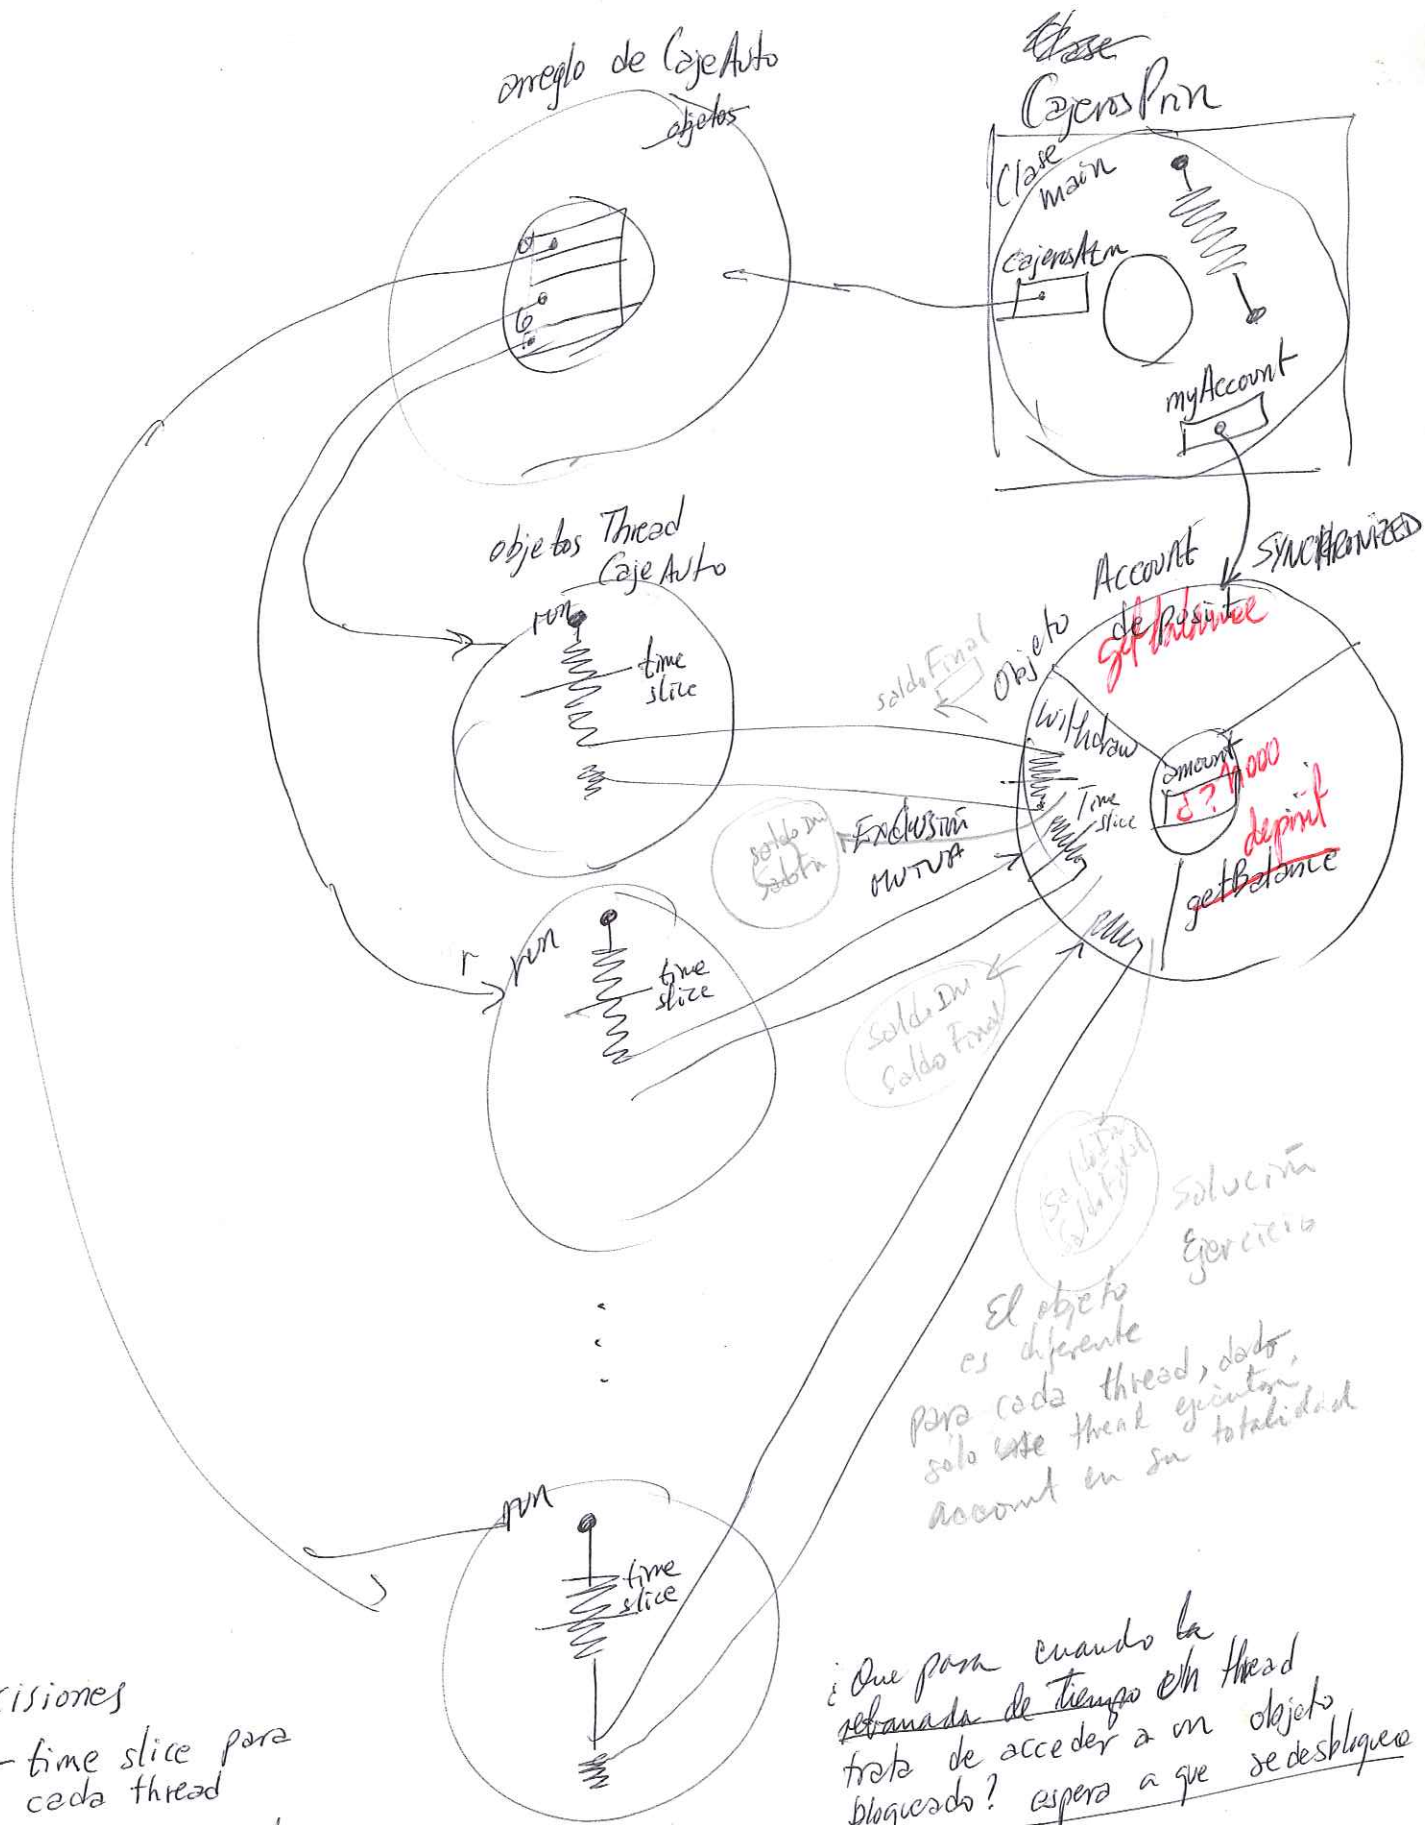 arreglo de CajeAuto
objetos
Clase
CajerosPrin
Clase
main
CajerosAtm
myAccount
0
6
objetos Thread
CajeAuto
run
time
slice
saldoFinal
Objeto Account
SYNCHRONIZED
deposit
getBalance
withdraw
amount
¿? 1000
Time
slice
deposit
getBalance
Exclusión
MUTUA
saldo In
r
run
time
slice
Saldo In
Saldo Final
Saldo In
Saldo Final
Solución
Ejercicio
El objeto
es diferente
para cada thread, dado,
solo este thread ejecutara
account en su totalidad
run
time
slice
cisiones
- time slice para
cada thread
¿Que pasa cuando la
rebanada de tiempo thread
trata de acceder a un objeto
bloqueado? espera a que se desbloquee